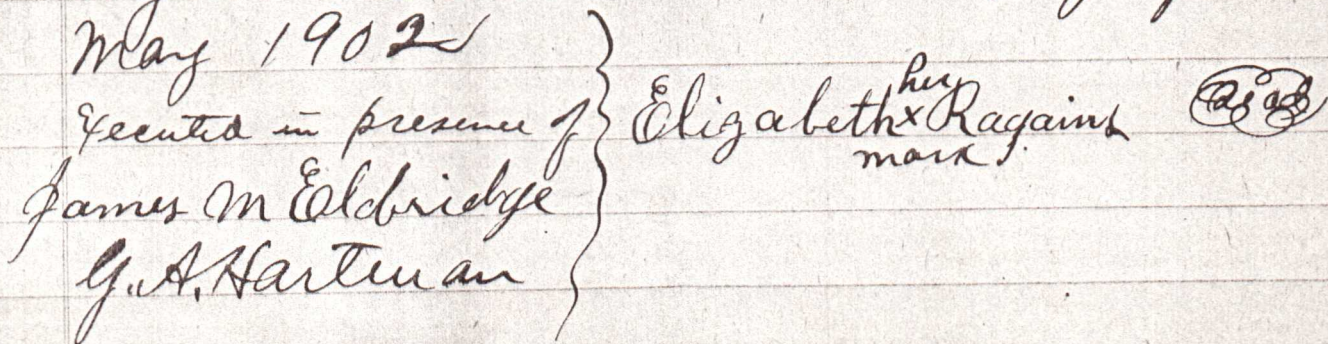 May 1902
Executed in presence of
James M Eldridge
G. A. Hartman
her
Elizabeth x Ragains
mark